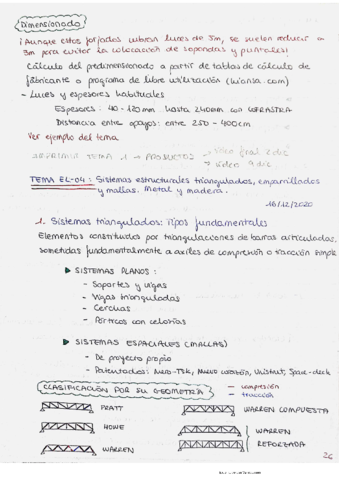 Dimensionado
¡Aunque estos forjados cubran luces de 5m, se suelen reducir a
3m para evitar la colocación de sopandas y puntales!
Cálculo del predimensionado a partir de tablas de cálculo de
fabricante o programa de libre utilización
- Luces y espesores habituales
Espesores: 40-120mm hasta 240mm
Distancia entre apoyos: entre 250 - 400cm
Ver ejemplo del tema
REPASAR TEMA 1 → PRODUCTOS
→ video
TEMA EL-04: Sistemas estructurales triangulados, emparrillados
y mallas. Metal y madera.
16/12/2020
1. Sistemas triangulados: Tipos fundamentales
Elementos constituidos por triangulaciones de barras articuladas,
sometidas fundamentalmente a axiles de compresión o tracción simple
▶ SISTEMAS PLANOS:
- Soportes y vigas
- Vigas trianguladas
- Cerchas
- Pórticos con celosías
▶ SISTEMAS ESPACIALES (MALLAS)
- De proyecto propio
- Patentados: Mero-TSK, Unistrut, Space-deck
CLASIFICACIÓN POR SU GEOMETRÍA
— compresión
— tracción
PRATT
WARREN COMPUESTA
HOWE
WARREN
REFORZADA
WARREN
26